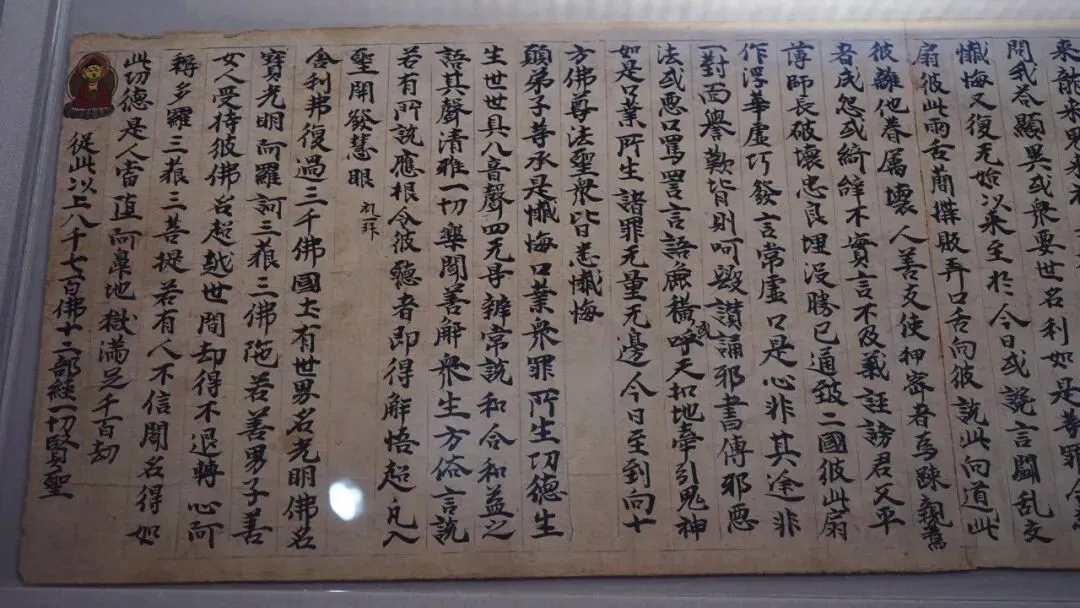 来龍来鬼来
問我答顯異或衆要世名利如是等罪今
懺悔又復无始以来至於今日或說言鬪乱交
扇彼此兩舌蕳㨹販弄口舌向彼說此向道此
彼離他眷屬壞人善友使狎密者為踈親舊
者成怨或綺辝不實言不及義誑謗君父平
薄師長破壞忠良埋没勝己通致二國彼此扇
作浮華虚巧發言常虚口是心非其途非
一對面譽歎皆則呵毀讃誦耶書傳耶惡
法或惡口罵詈言語麁橫或呼天扣地牽引鬼神
如是口業所生諸罪无量无邊今日至到向十
方佛尊法聖衆皆曰悉懺悔
願弟子等承是懺悔口業衆罪所生切德生
生世世具八音聲四无㝵辨常說和合和益之
語其聲清雅一切樂聞善解衆生方俗言說
若有所說應根令彼聽者即得解悟超凡入
聖開發慧眼 礼一拜
舍利弗復過三千佛國土有世界名光明佛名
寶光明阿羅訶三狼三佛陁若善男子善
女人受待彼佛名超越世間却得不退轉心阿
耨多羅三狼三菩提若有人不信聞名得如
此切德是人當堕阿鼻地獄滿足千百劫
從此以上八千七百佛十二部経一切賢聖